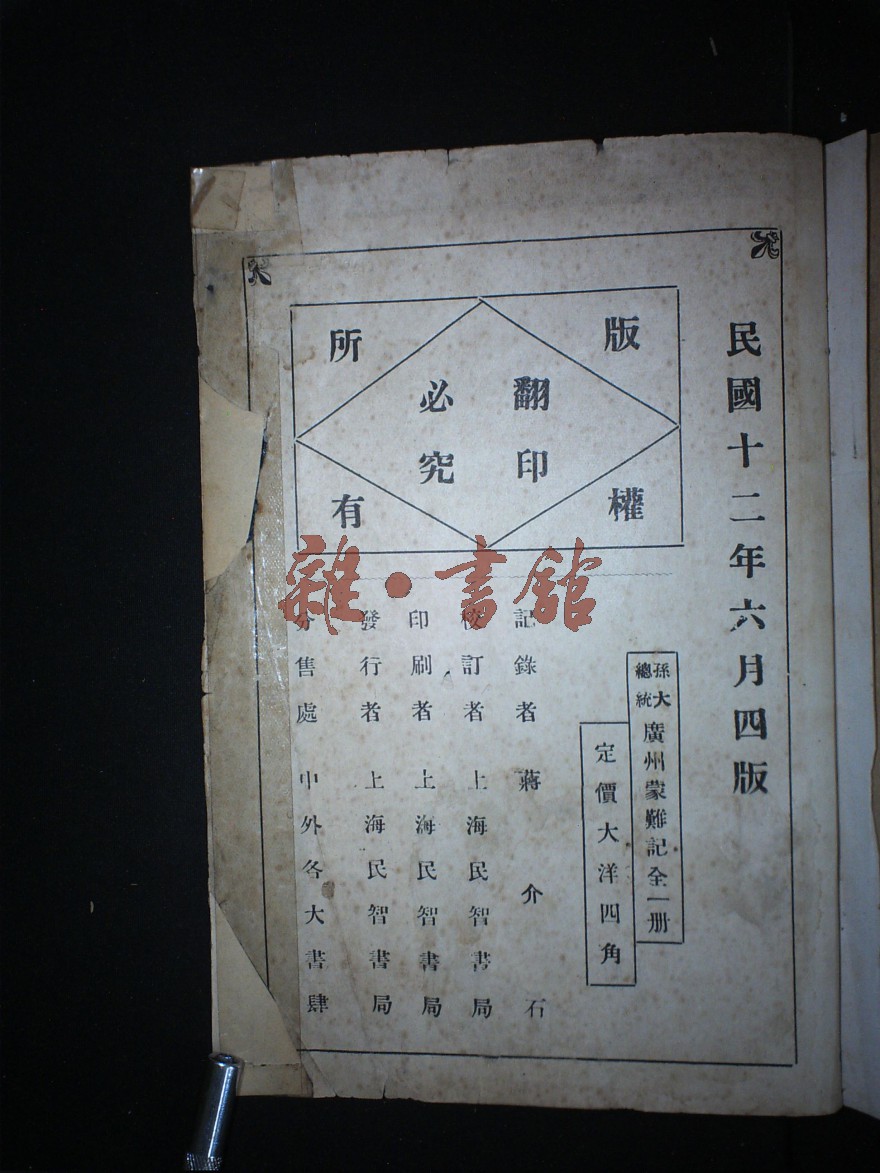 民國十二年六月四版
版權所有
翻印必究
孫大總統廣州蒙難記全一册
定價大洋四角
記錄者 蔣介石
校訂者 上海民智書局
印刷者 上海民智書局
發行者 上海民智書局
分售處 中外各大書肆
雜·書館